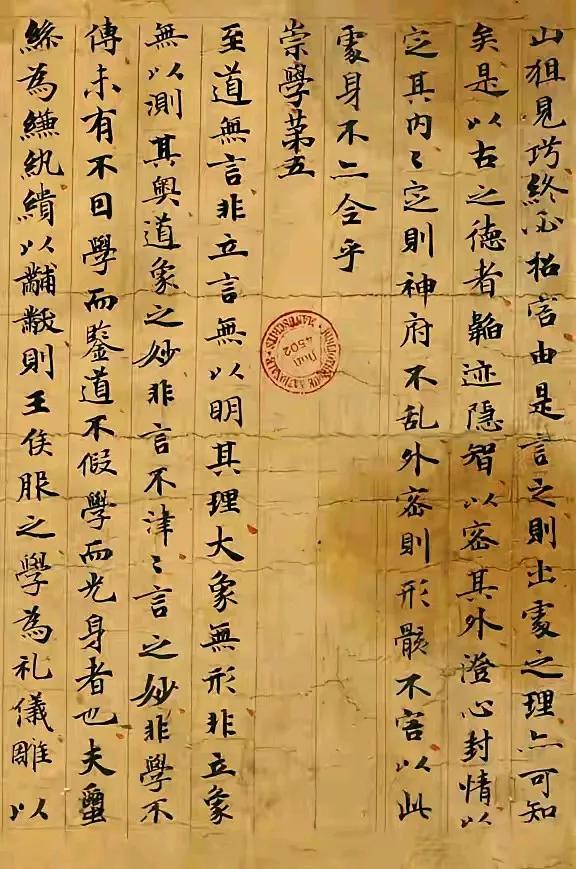 山狙見巧終必招害由是言之則出處之理亦可知
矣是以古之德者韜迹隱智以密其外澄心封情以
定其內〻定則神府不乱外密則形骸不害以此
處身不亦全乎
崇學第五
至道無言非立言無以明其理大象無形非立象
無以測其奧道象之妙非言不津〻言之妙非學不
傳未有不因學而鑒道不假學而光身者也夫蠒
絲為縑紈繢以黼黻則王侯服之學為礼儀雕以
BIBLIOTHEQUE NATIONALE
MANUSCRITS
DON
4502